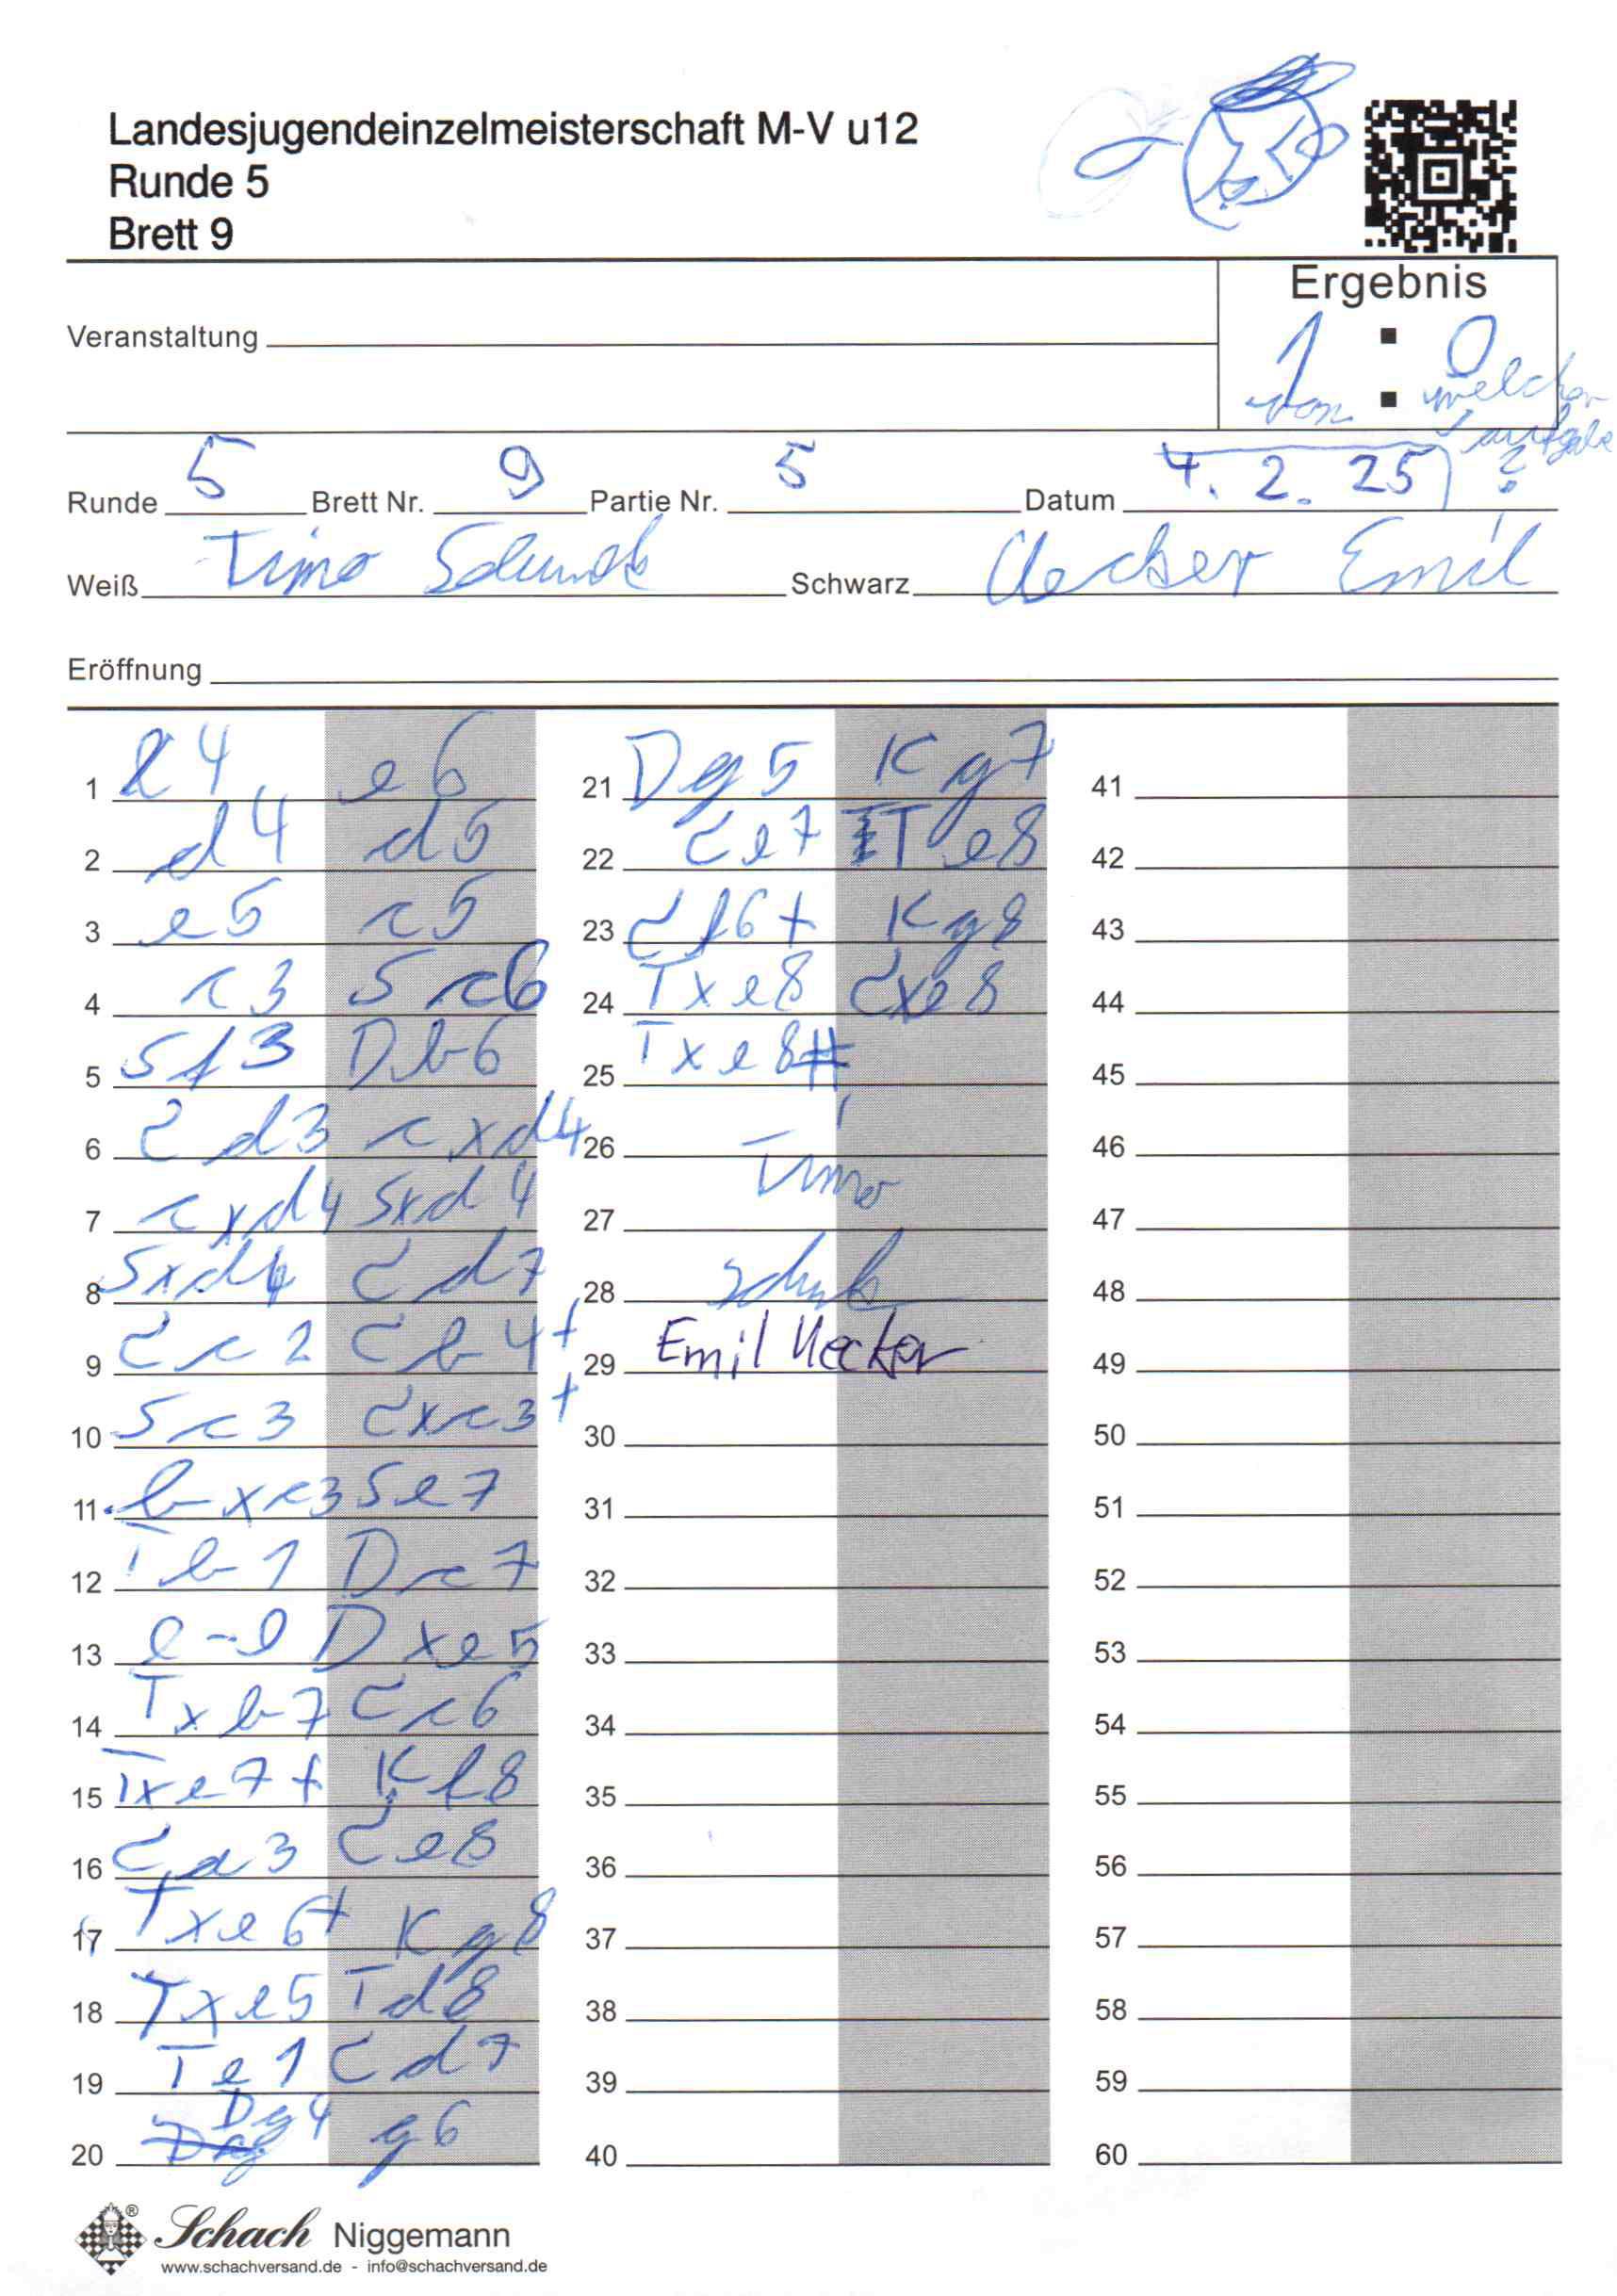 Landesjugendeinzelmeisterschaft M-V u12
Runde 5
Brett 9
Ergebnis
1 : 0
von : welcher
Aufgabe
?
Veranstaltung
Runde 5 Brett Nr. 9 Partie Nr. 5 Datum 4. 2. 25
Weiß Timo Schunk Schwarz Uecker Emil
Eröffnung
1 e4 e6
2 d4 d5
3 e5 c5
4 c3 Sc6
5 Sf3 Db6
6 Ld3 cxd4
7 cxd4 Sxd4
8 Sxd4 Ld7
9 Lc2 Lb4+
10 Sc3 Lxc3+
11 bxc3 Se7
12 Tb1 Dc7
13 0-0 Dxe5
14 Txb7 Lc6
15 Txe7+ Kf8
16 La3 Le8
17 Txe6+ Kg8
18 Txe5 Td8
19 Te1 Ld7
20 Dg4 g6
21 Dg5 Kg7
22 Le7 Te8
23 Lf6+ Kg8
24 Txe8 Lxe8
25 Txe8#
26 Timo
27
28
29 Emil Uecker
30
31
32
33
34
35
36
37
38
39
40
41
42
43
44
45
46
47
48
49
50
51
52
53
54
55
56
57
58
59
60
Schach Niggemann
www.schachversand.de - info@schachversand.de